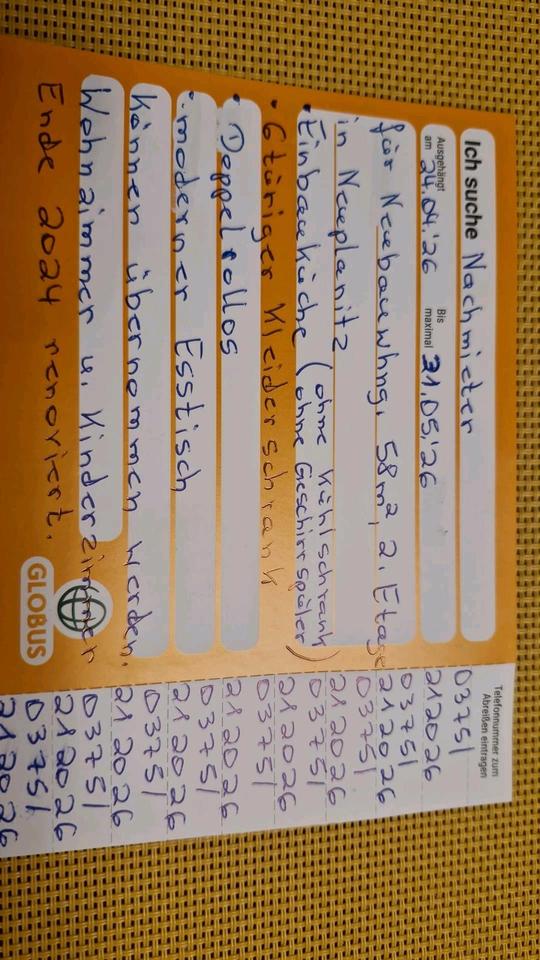 Ich suche Nachmieter
Ausgehängt am 24.04.'26 Bis maximal 31.05.'26
für Neubauwhng, 58m², 2. Etage
in Neuplanitz
• Einbauküche (ohne Kühlschrank
(ohne Geschirrspüler)
• 6türiger Kleiderschrank
• Doppelrollos
• moderner Esstisch
können übernommen werden.
Wohnzimmer u. Kinderzimmer
Ende 2024 renoviert.
GLOBUS
Telefonnummer zum
Abreißen eintragen
03751
212026
03751
212026
03751
212026
03751
212026
03751
212026
03751
212026
03751
212026
03751
212026
03751
212026